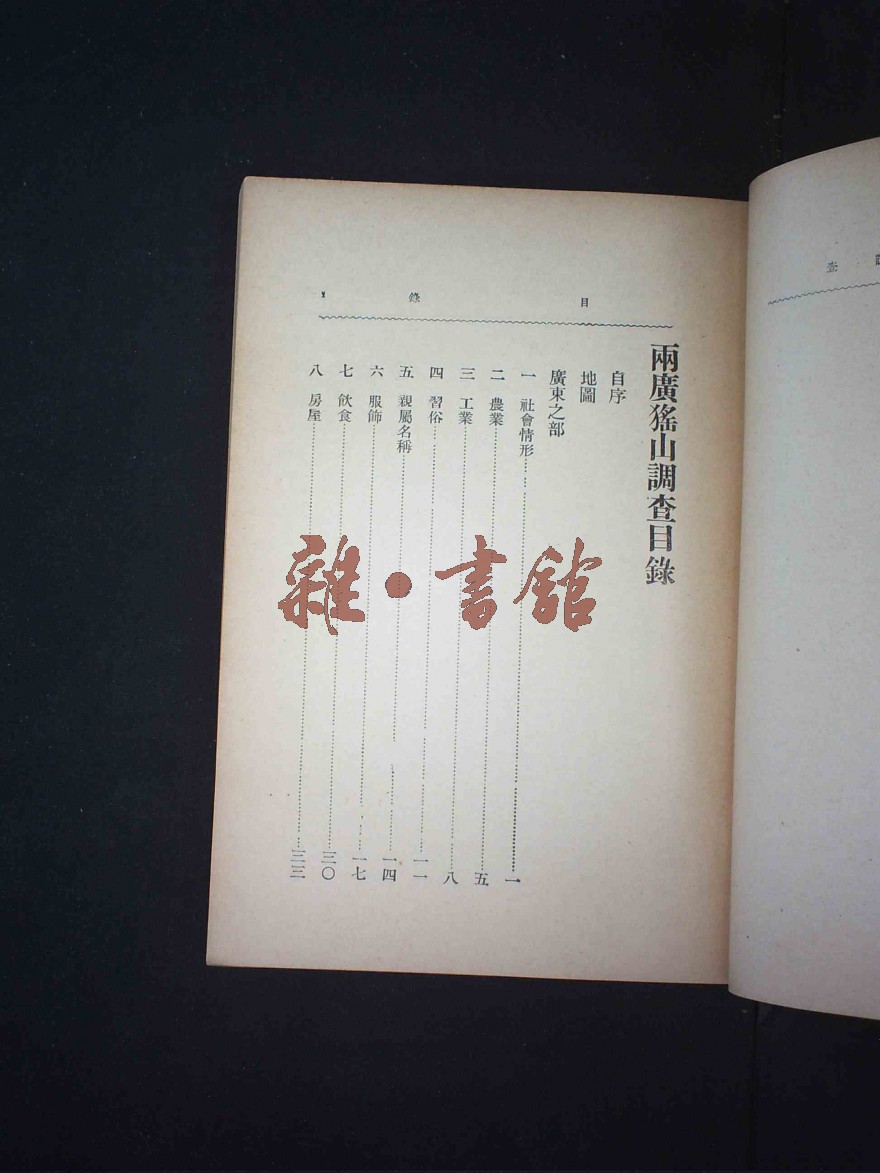 目錄
兩廣猺山調查目錄
自序
地圖
廣東之部
一 社會情形 一
二 農業 五
三 工業 八
四 習俗 一一
五 親屬名稱 一四
六 服飾 一七
七 飲食 三〇
八 房屋 三三
雜·書館
查